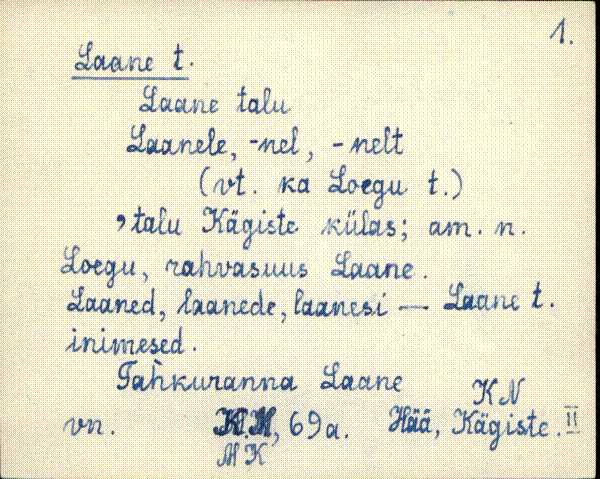 1.
Laane t.
Laane talu
Laanele, -nel, -nelt
(vt. ka Loegu t.)
, talu Kägiste külas; am. n.
Loegu, rahvasuus Laane.
Laaned, laanede, laanesi — Laane t.
inimesed.
Tahkuranna Laane
KN
vn. 69a. Hää, Kägiste. II
MK